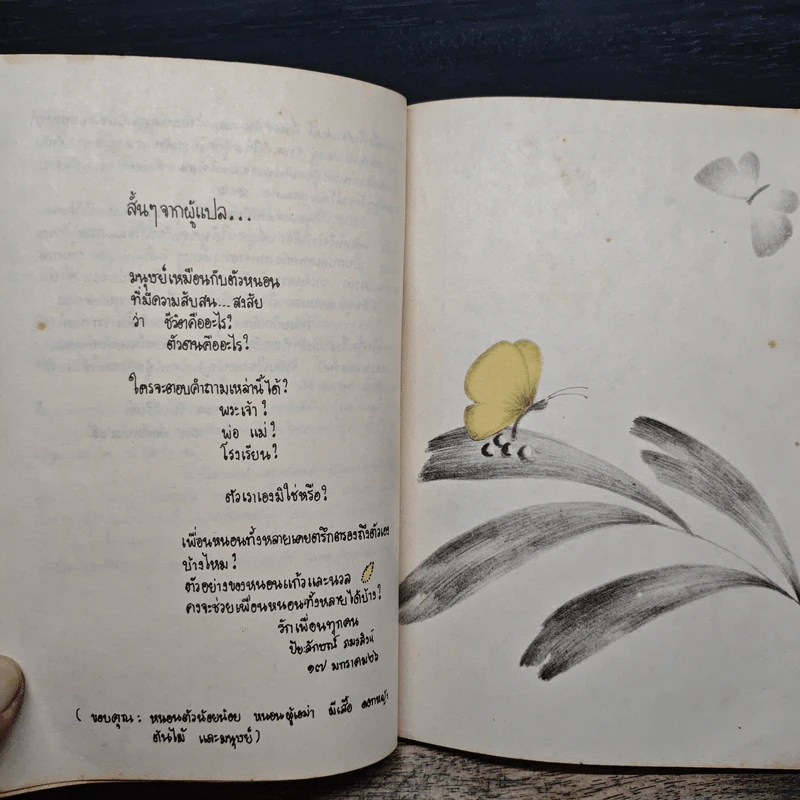 สั้นๆจากผู้แปล...
มนุษย์เหมือนกับตัวหนอน
ที่มีความสับสน...สงสัย
ว่า ชีวิตคืออะไร?
ตัวตนคืออะไร?
ใครจะตอบคำถามเหล่านี้ได้?
พระเจ้า?
พ่อ แม่?
โรงเรียน?
ตัวเราเองมิใช่หรือ?
เพื่อนหนอนทั้งหลายเคยตรึกตรองถึงตัวเอง
บ้างไหม?
ตัวอย่างของหนอนแก้วและนวล
คงจะช่วยเพื่อนหนอนทั้งหลายได้บ้าง?
รักเพื่อนทุกคน
ปิยะลักษณ์ ภมรสิงห์
๑๗ มกราคม๒๖
(ขอบคุณ: หนอนตัวน้อยน้อย หนอนผู้เฒ่า ผีเสื้อ ดอกหญ้า
ต้นไม้ และมนุษย์)